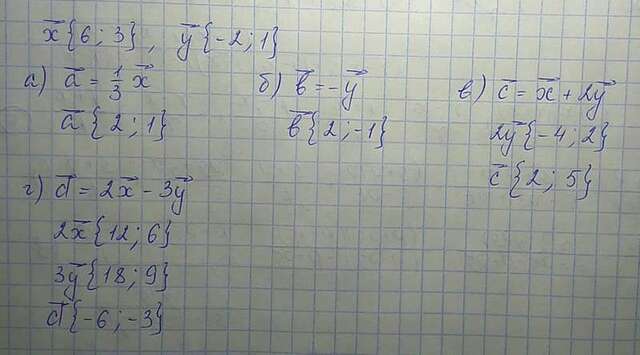 x⃗{6; 3}, y⃗{-2; 1}
а) a⃗ = 1/3 x⃗
a⃗{2; 1}
б) b⃗ = -y⃗
b⃗{2; -1}
в) c⃗ = x⃗ + 2y⃗
2y⃗{-4; 2}
c⃗{2; 5}
г) d⃗ = 2x⃗ - 3y⃗
2x⃗{12; 6}
3y⃗{18; 9}
d⃗{-6; -3}